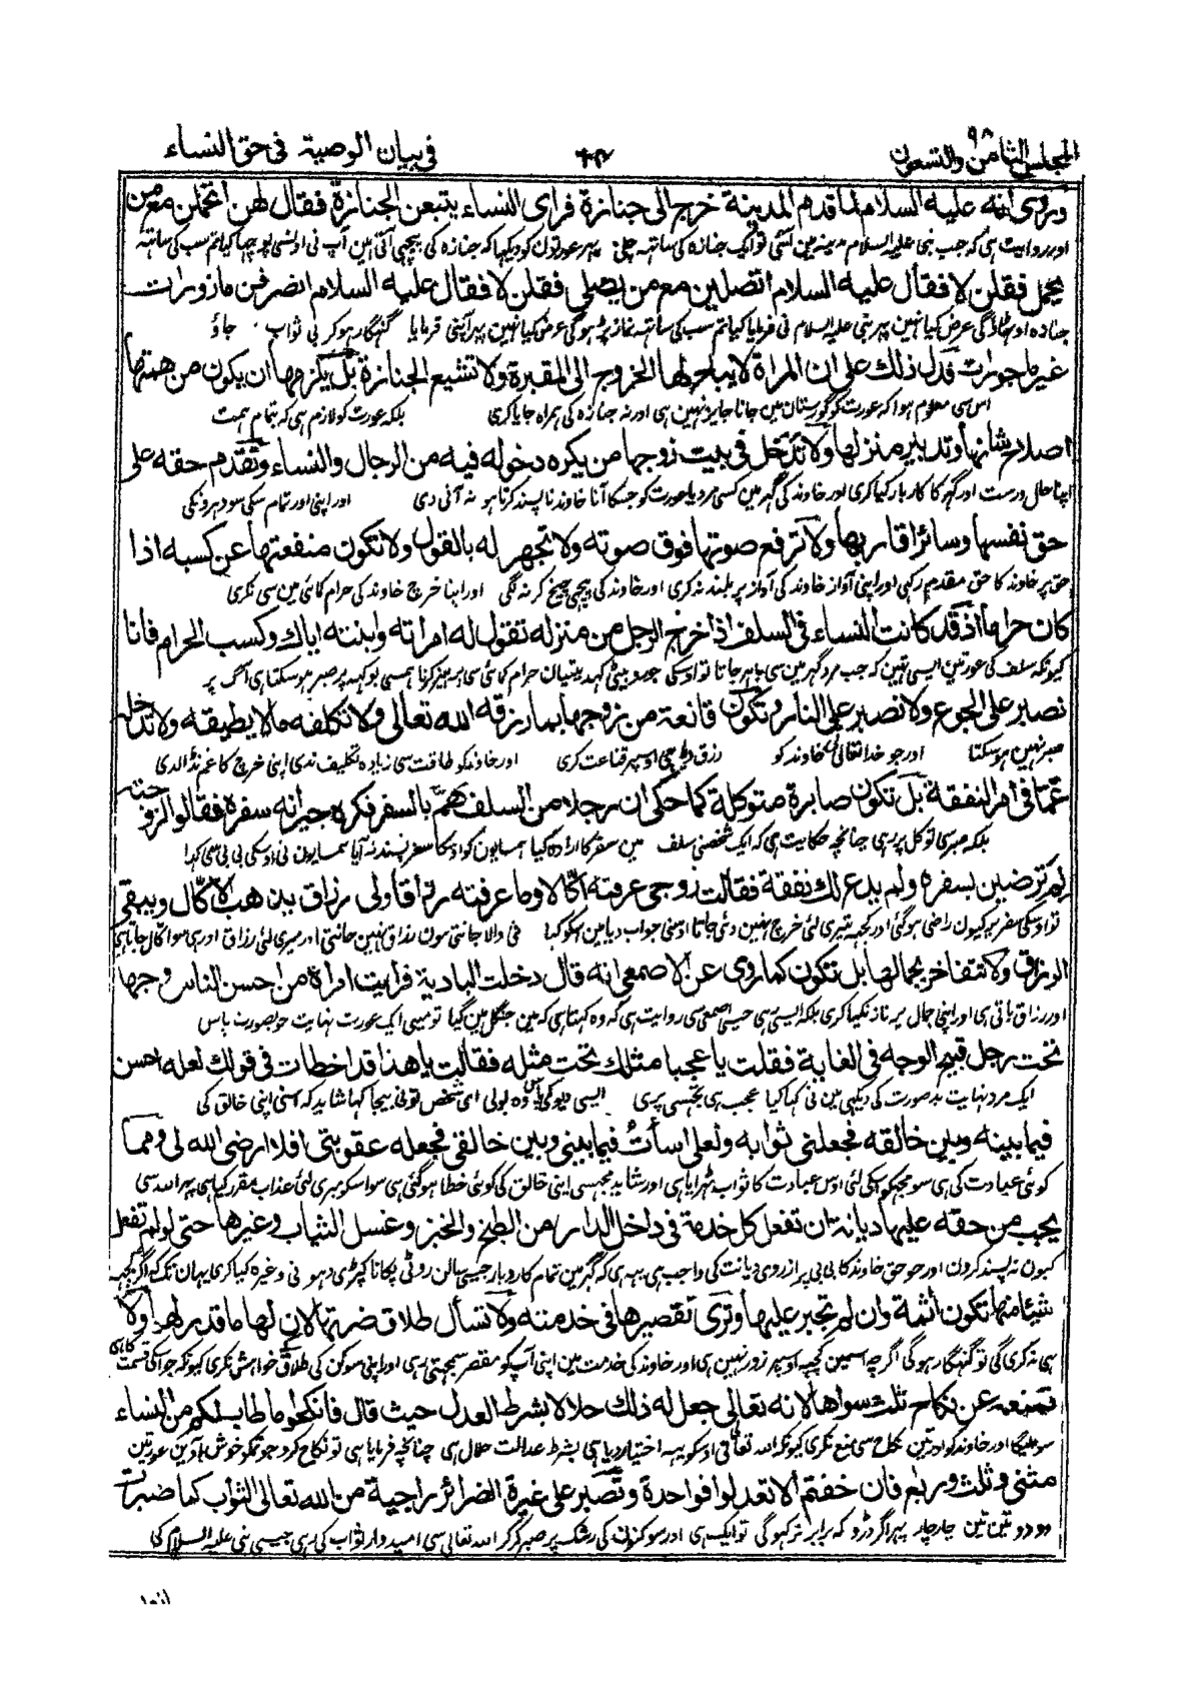 المجلس الثامن والتسعون ٩٨
في بيان الوصية في حق النساء
وروى انه عليه السلام لما قدم المدينة خرج الى جنازة فراى النساء يتبعن الجنازة فقال لهن اتحملن مع من
اور روایت ہی کہ جب نبی علیه السلام مدینہ مین آئی تو ایک جنازہ کی ساتہہ چلی پہر عورتون کو دیکہا کہ جنازہ کی پیچہی آتی ہین آپ نی اونسی پوچہا کیا تم سب کی ساتہہ
يحمل فقلن لا فقال عليه السلام اتصلين مع من يصلي فقلن لا فقال عليه السلام انصرفن مازورات
جنازہ اوٹہاؤگی عرض کیا نہین پہر نبی علیه السلام نی فرمایا کیا تم سب کی ساتہہ نماز پڑہوگی عرض کیا نہین پہر آپنی فرمایا گنہگار ہو کر بی ثواب جاؤ
غير ماجورات فدل ذلك على ان المراة لا يباح لها الخروج الى المقبرة ولا تشييع الجنازة بل يلزمها ان يكون من همتها
اس سی معلوم ہوا کہ عورت کو گورستان مین جانا جایز نہین ہی اور نہ جنازہ کی ہمراہ جایا کری بلکہ عورت کو لازم ہی کہ بتمام ہمت
اصلاح شانها وتدبير منزلها ولا تدخل في بيت زوجها من يكره دخوله فيه من الرجال والنساء وتقدم حقه على
اپنا حال درست اور گہر کا کاربار کیا کری اور خاوند کی گہر مین کسی مرد یا عورت کو جسکا آنا خاوند ناپسند کرتا ہو نہ آنی دی اور اپنی اور تمام سکی سودہرونکی
حق نفسها وسائر اقاربها ولا ترفع صوتها فوق صوته ولا تجهر له بالقول ولا تكون منفعتها عن كسبه اذا
حق پر خاوند کا حق مقدم رکہی اور اپنی آواز خاوند کی آواز پر بلند نہ کری اور خاوند کی پیچہی چیخ کر نہ لگی اور اپنا خرچ خاوند کی حرام کمائی مین سی نکری
كان حراما اذ قد كانت النساء في السلف اذا خرج الرجل من منزله تقول له امراته وابنته اياك وكسب الحرام فانا
کیونکہ سلف کی عورتین ایسی تہین کہ جب مرد گہر مین سی باہر جاتا تو اوسکی جورو بیٹی کہدیتیان حرام کمائی سی پرہیز کرنا ہمسی بوکہہ پر صبر ہوسکتا ہی آگ پر
نصبر على الجوع ولا نصبر على النار وتكون قانعة من زوجها بما رزقه الله تعالى ولا تكلفه ما لا يطيقه ولا تدخل
صبر نہین ہو سکتا اور جو خدا تعالی خاوند کو رزق دی اوسپر قناعت کری اور خاوند کو طاقت سی زیادہ تکلیف ندی اپنی خرچ کا غم نڈالدی
غما في امر النفقة بل تكون صابرة متوكلة كما حكي ان رجلا من السلف هم بالسفر فكره جيرانه سفره فقالوا لزوجته
بلکہ صبری توکل پر رہی چنانچہ حکایت ہی کہ ایک شخص سلف مین سفر کا ارادہ کیا ہمسایون کو اوسکا سفر پسند نہ آیا ہمسایون نی اوسکی بی بی سی کہا
لم ترضين بسفره ولم يدع لك نفقة فقالت زوجي عرفته اكالا وما عرفته رزاقا ولي رزاق يذهب الاكال ويبقى
تو اوسکی سفر پر کیون راضی ہو گئی اور کچہہ تیری لئی خرچ نہین دئی جاتا اوسنی جواب دیا مین اسکو کہا نی والا جانتی ہون رزاق نہین جانتی اور میری لئی رزاق اور ہی سو اکال جاتا ہی
الرزاق ولا تتفاخر بجمالها بل تكون كما روي عن الاصمعي انه قال دخلت البادية فرايت امراة من احسن الناس وجها
اور رزاق باقی ہی اور اپنی جمال پر ناز نکیا کری بلکہ ایسی ہی جیسی اصمعی سی روایت ہی کہ وہ کہتا ہی کہ مین جنگل مین گیا تو مینی ایک عورت نہایت خوبصورت پاس
تحت رجل قبيح الوجه في الغاية فقلت يا عجبا مثلك تحت مثله فقالت يا هذا قد اخطات في قولك لعله احسن
ایک مرد نہایت بدصورت کی دیکہی مین نی کہا کیا عجب ہی تجہسی پری ایسی دیو کی پاس وہ بولی ای شخص تونی بیجا کہا شاید کہ اسنی اپنی خالق کی
فيما بينه وبين خالقه فجعلني ثوابه ولعلي اسأت فيما بيني وبين خالقي فجعله عقوبتي افلا ارضى الله لي ومما
کوئی عبادت کی ہی سو مجہکو اسکی لئی اوس عبادت کا ثواب ٹہرایا ہی اور شاید مجہسی اپنی خالق کی کوئی خطا ہو گئی ہی سو اسکو میری لئی عذاب مقرر کیا ہی پہر الله سی
يجب من حقه عليها ديانة ان تفعل كل خدمة في داخل الدار من الطبخ والخبز وغسل الثياب وغيرها حتى لو لم تفعل
کیون نہ پسند کرون اور جو حق خاوند کا بی بی پر از روی دیانت کی واجب ہی یہہ ہی کہ گہر مین تمام کاروبار جیسی سالن روٹی پکانا کپڑی دہونی وغیرہ کیا کری یہان تک کہ اگر کچہہ
شيئا منها تكون اثمة وان لم تجبر عليها وترى تقصيرها في خدمته ولا تسأل طلاق ضرتها لان لها ما قدر لها ولا
بہی نہ کری گی تو گنہگار ہوگی اگرچہ اسمین کچہہ اوسپر زور نہین ہی اور خاوند کی خدمت مین اپنی آپ کو مقصر سمجہتی رہی اور اپنی سوکن کی طلاق خواہش نکری کیونکہ جو اسکی قسمت کا ہی
تمنعه عن نكاح ثلث سواها لانه تعالى جعل له ذلك حلالا بشرط العدل حيث قال فانكحوا ما طاب لكم من النساء
سو ملیگا اور خاوند کو اور تین نکاح سی منع نکری کیونکہ الله تعالی نی اوسکو یہہ اختیار دیا ہی بشرط عدالت حلال ہی چنانچہ فرمایا ہی تو نکاح کرو جو تمکو خوش آوین عورتین
مثنى وثلث وربع فان خفتم الا تعدلوا فواحدة وتصبر على غيرة الضرائر راجية من الله تعالى الثواب كما صبرت
دو دو تین تین چار چار پہر اگر ڈرو کہ برابر نہ کروگی تو ایک ہی اور سوکنونکی رشک پر صبر کر کر الله تعالی سی امیدوار ثواب کی رہی جیسی نبی علیه السلام کی